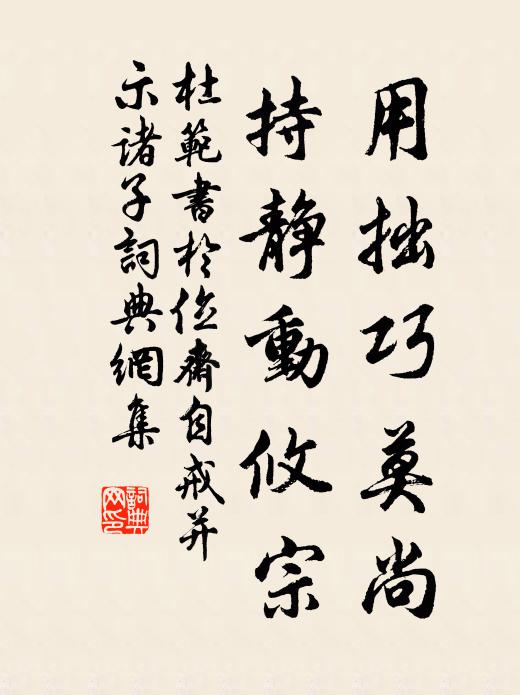 用拙巧莫尚
持靜動攸宗
杜範書於位齋自戒并
示诸子詞典網集
詞典网印